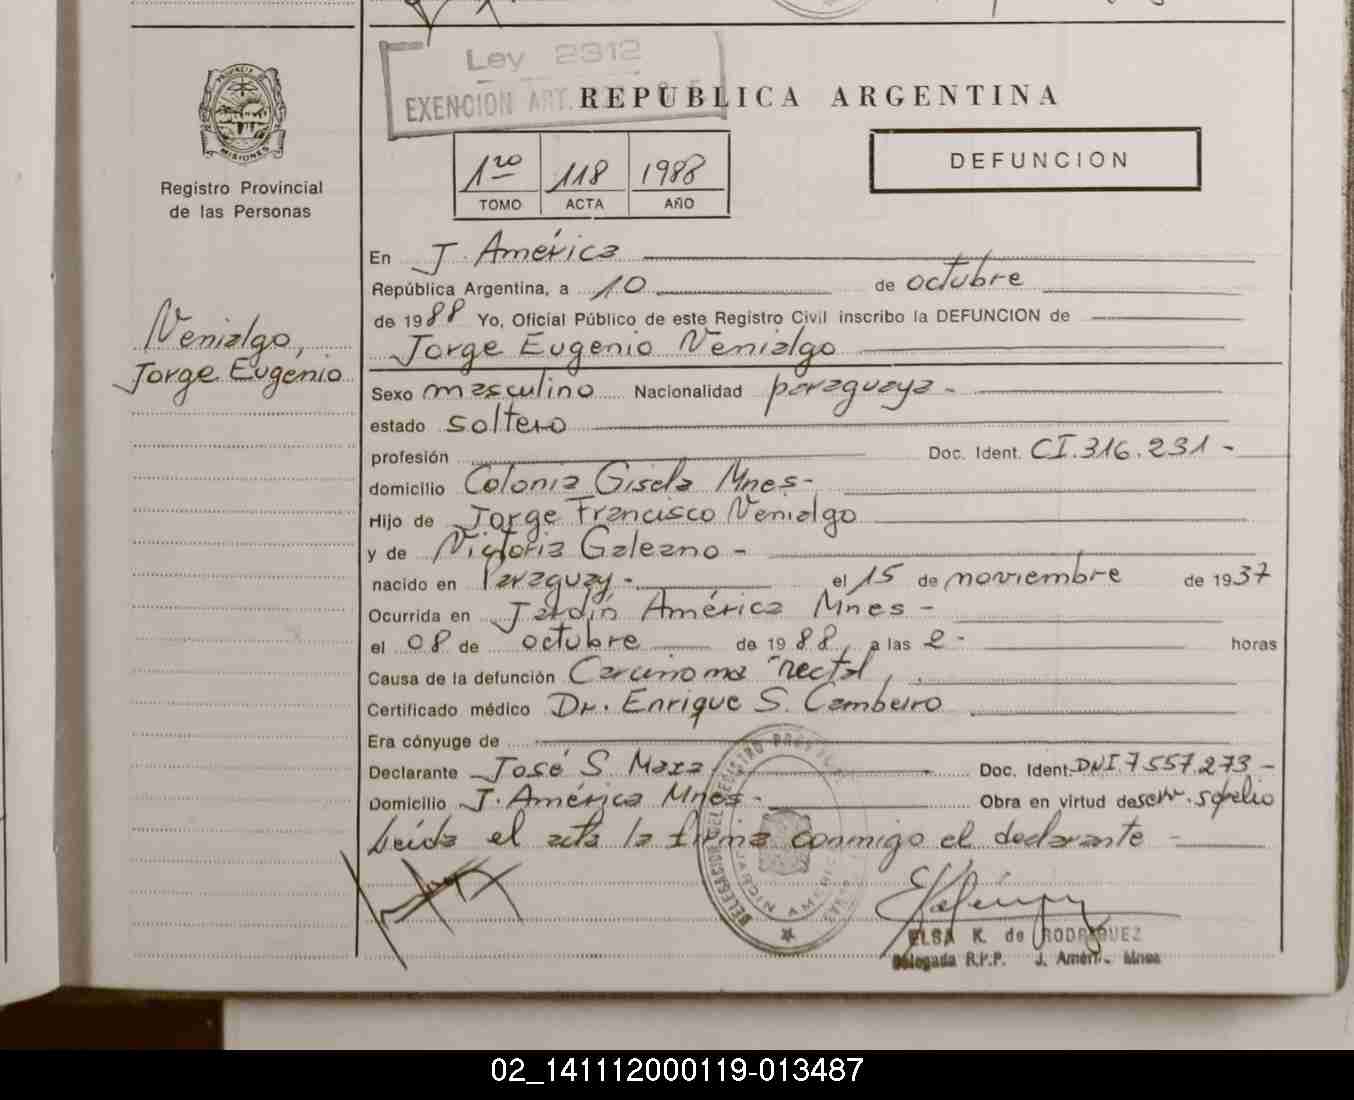 Ley 2312
EXENCION ART.
REPUBLICA ARGENTINA
PROVINCIA DE
MISIONES
Registro Provincial
de las Personas
1ro 118 1988
TOMO ACTA AÑO
DEFUNCION
En J. América
República Argentina, a 10 de octubre
de 1988 Yo, Oficial Público de este Registro Civil inscribo la DEFUNCION de
Jorge Eugenio Venialgo
Venialgo,
Jorge Eugenio
Sexo masculino Nacionalidad paraguaya -
estado soltero
profesión Doc. Ident. CI.316.231 -
domicilio Colonia Gisela Mnes-
Hijo de Jorge Francisco Venialgo
y de Victoria Galeano -
nacido en Paraguay - el 15 de noviembre de 1937
Ocurrida en Jardín América Mnes -
el 08 de octubre de 1988, a las 2 - horas
Causa de la defunción Carcinoma rectal,
Certificado médico Dr. Enrique S. Cambeiro
Era cónyuge de
Declarante José S. Maza Doc. Ident. DNI.7557273 -
Domicilio J. América Mnes - Obra en virtud de
Leída el acta la firma conmigo el declarante -
DELEGACION DEL REGISTRO PROVINCIAL
JARDIN AMERICA
ELSA K. de RODRIGUEZ
Delegada R.P.P. J. Amér. - Mnes
02_141112000119-013487